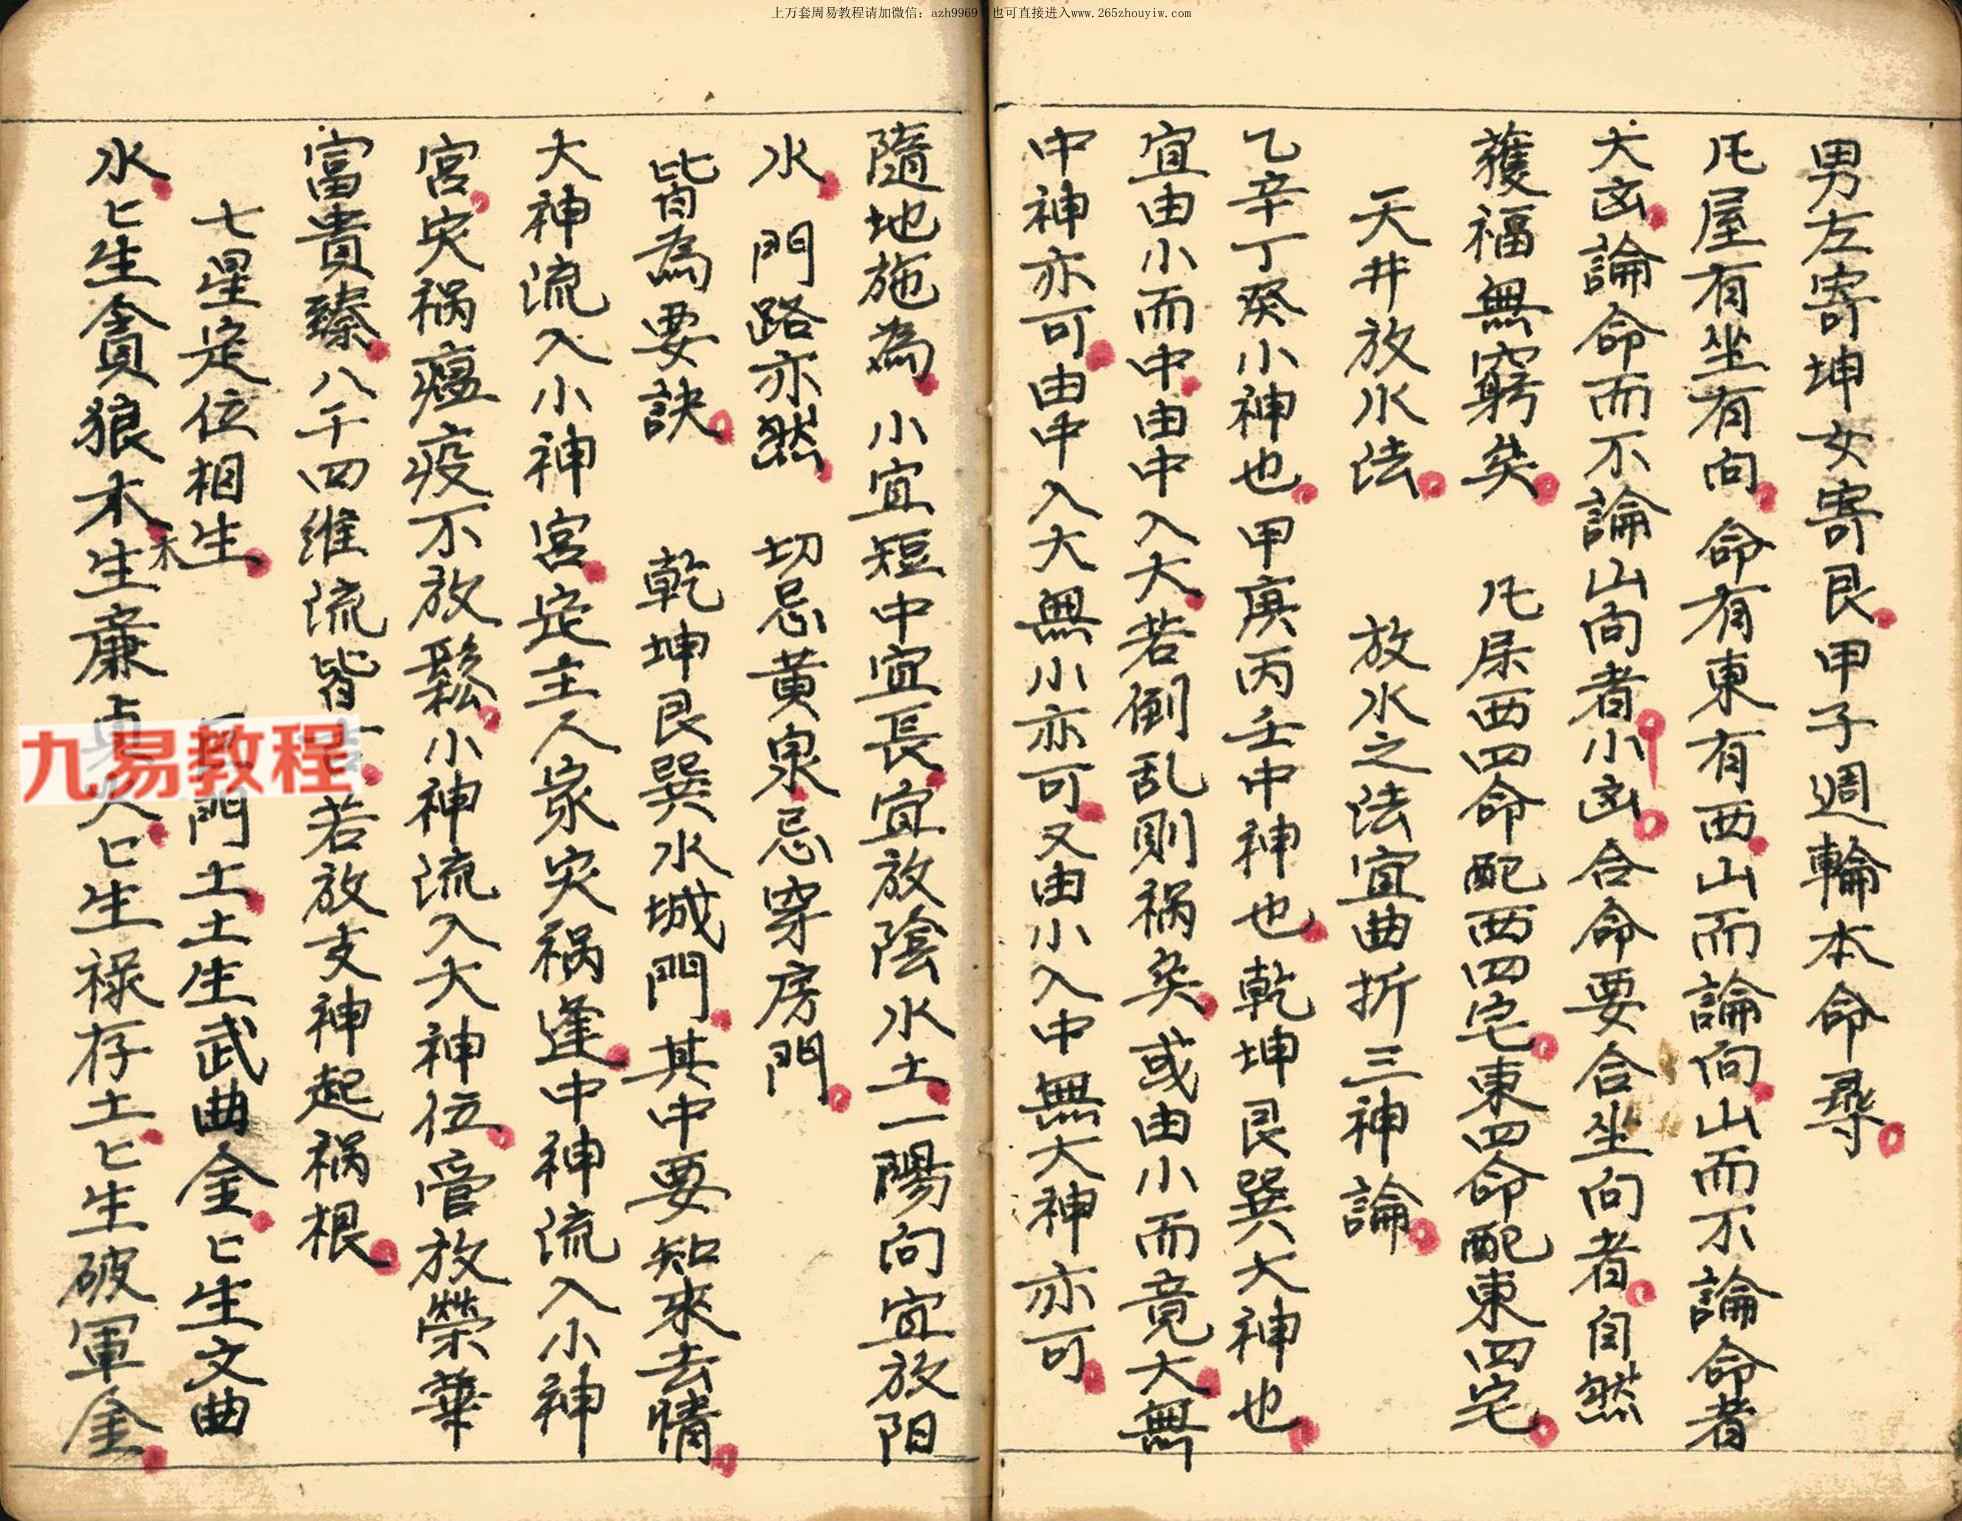 上万套周易教程请加微信：azh9969 也可直接进入www.265zhouyiw.com
男左寄坤女寄艮甲子週輪本命尋
凡屋有坐有向命有東有西山而論向山而不論命者
大凶論命而不論山向者小凶合命要合坐向者自然
獲福無窮矣 凡屎西四命配西四宅東四命配東四宅
天井放水法 放水之法宜曲折三神論
乙辛丁癸小神也甲庚丙壬中神也乾坤艮巽大神也
宜由小而中由中入大若倒乱則祸矣或由小而竟大無
中神亦可由中入大無小亦可又由小入中無大神亦可
隨地施為 小宜短中宜長宜放陰水土一陽向宜放阳
水 門路亦然 切忌黄泉忌穿房門
皆為要訣 乾坤艮巽水城門其中要知來去情
大神流入小神宮定主人家灾祸逢中神流入小神
宮灾祸瘟疫不放鬆小神流入大神位管放榮華
富貴臻八千四維流皆 若放支神起祸根
七星定位相生 門土土生武曲金匕生文曲
水匕生貪狼木生廉貞火匕生禄存土匕生破軍金
木
九易教程